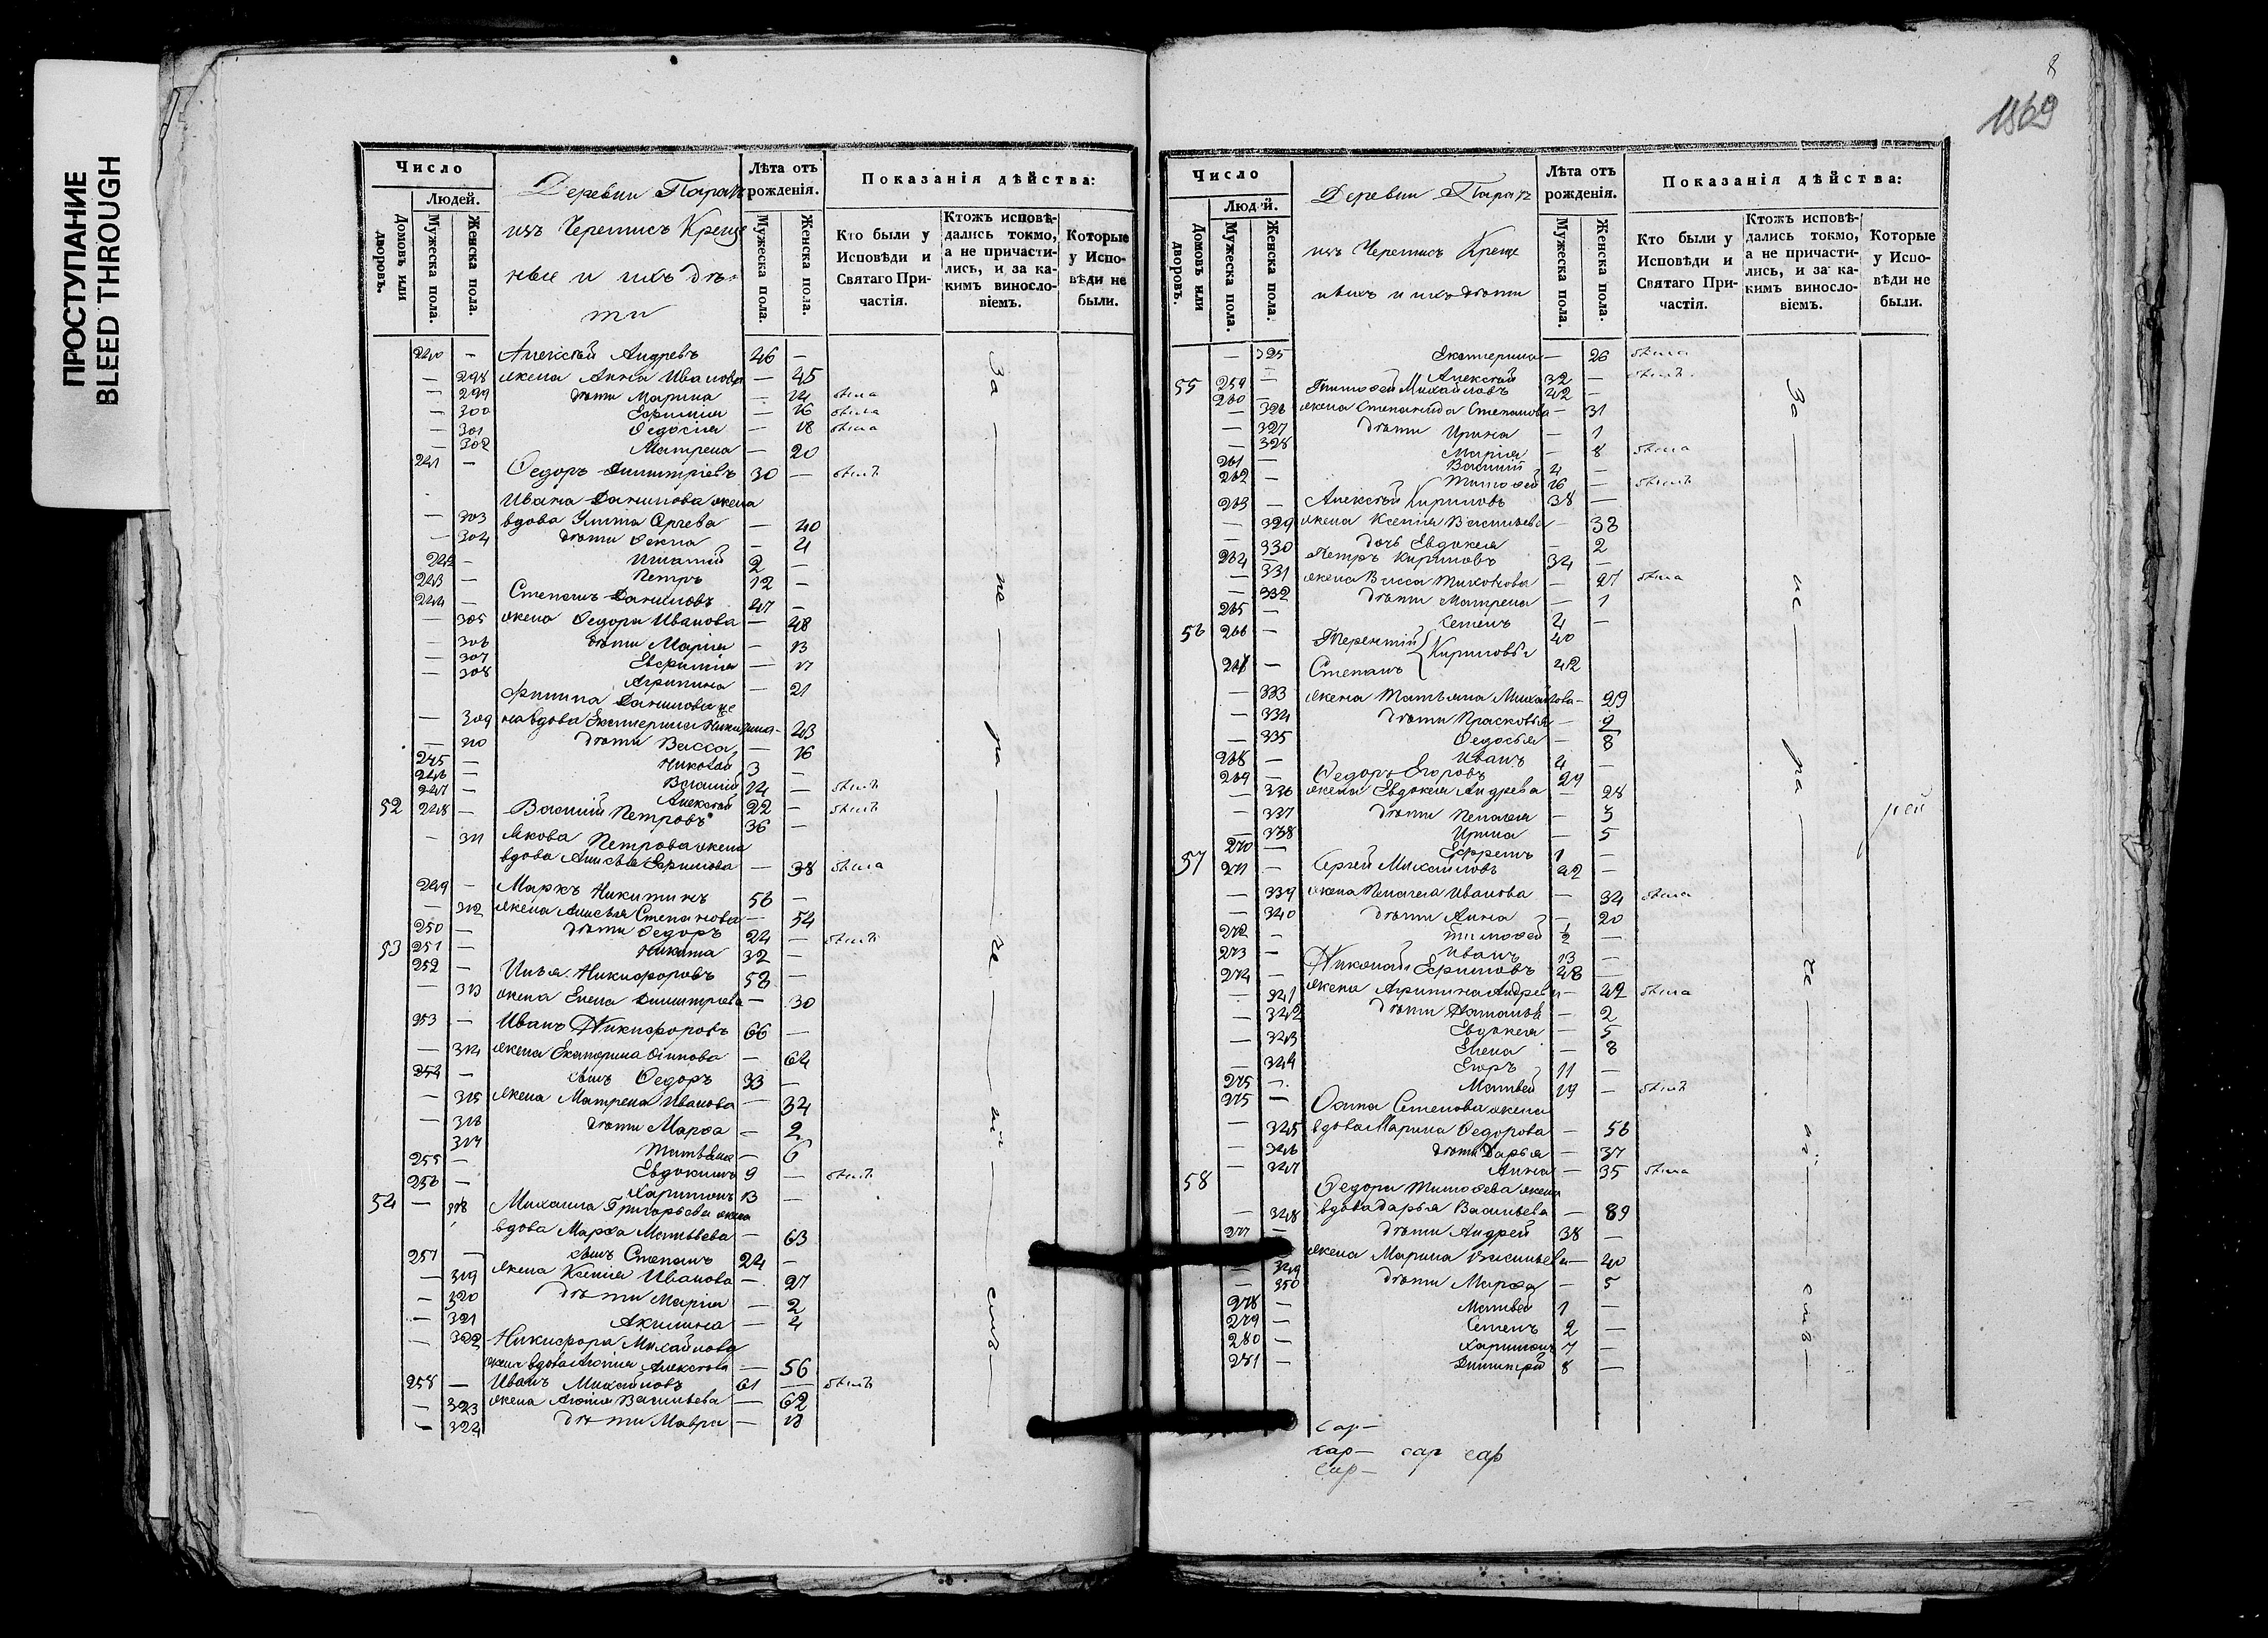 ПРОСТУПАНИЕ
BLEED THROUGH
Число
Людей.
Домовъ или дворовъ.
Мужеска пола.
Женска пола.
Деревни Парат
изъ Черемисъ Креще
ные и ихъ дѣ-
ти
Лѣта отъ рожденія.
Мужеска пола.
Женска пола.
Показанія дѣйства:
Кто были у Исповѣди и Святаго Причастія.
Ктожъ исповѣдались токмо, а не причастились, и за какимъ винословіемъ.
Которые у Исповѣди не были.
240 — Алексѣй Андреевъ 46 —
— 298 жена Анна Иванова — 45
— 299 дѣти Марина — 14 была
— 300 Ефимия — 16 была
— 301 Федосія — 18 была
— 302 Матрена — 20
241 — Федоръ Димитріевъ 30 — былъ
Ивана Данилова жена
— 303 вдова Улита Сергева — 40
— 304 дѣти Фекла — 4
242 — Игнатій 2 —
243 — Петръ 12 —
244 — Степанъ Даниловъ 47 —
— 305 жена Федора Иванова — 48
— 306 дѣти Марія — 13
— 307 Евфимія — 17
— 308 Агрипина — 21
Филипа Данилова же
— 309 на вдова Екатерина — 43
— 310 дѣти Васса — 16
245 — Николай 3 —
246 — Василій 14 — былъ
247 — Алексѣй 22 — былъ
52 248 — Василій Петровъ 36 —
— 311 Якова Петрова жена
вдова Анисья Ефимова — 38 была
249 — Маркъ Никитинъ 56 —
— 312 жена Анисья Степанова — 54
250 — дѣти Федоръ 24 — былъ
53 251 — Никита 32 —
252 — Илья Никифоровъ 58 —
— 313 жена Елена Димитріева — 30
253 — Иванъ Никифоровъ 66 —
— 314 жена Екатерина Осипова — 64
254 — сынъ Федоръ 33 —
— 315 жена Матрена Иванова — 34
— 316 дѣти Марфа — 2
317 Татьяна — 6
255 — Евдокимъ 9 — былъ
256 — Харитонъ 13 —
54 — 318 Михаила Григорьева жена
вдова Марфа Матвѣева — 63
257 — сынъ Степанъ 24 —
— 319 жена Ксенія Иванова — 27
— 320 дѣти Марія — 2
— 321 Акилина — 4
— 322 Никифора Михайлова
жена вдова Алексѣева — 56
258 — Иванъ Михайловъ 61 — былъ
— 323 жена Васильева — 62
— 324 дѣти Мавра — 13
За — не — ра — че — ні — емъ —
8
1369
Число
Людей.
Домовъ или дворовъ.
Мужеска пола.
Женска пола.
Деревни Парат
изъ Черемисъ Креще
ныхъ и ихъ дѣти
Лѣта отъ рожденія.
Мужеска пола.
Женска пола.
Показанія дѣйства:
Кто были у Исповѣди и Святаго Причастія.
Ктожъ исповѣдались токмо, а не причастились, и за какимъ винословіемъ.
Которые у Исповѣди не были.
— 325 Екатерина — 26 была
55 259 — Алексѣй 32 — былъ
260 — Тимофей Михайловъ 42 —
— 326 жена Степанида Степанова — 31
— 327 дѣти Ирина — 1
— 328 Марія — 8 была
261 — Василій 4 —
262 — Тимофей 16 — былъ
263 — Алексѣй Кириловъ 38 —
— 329 жена Ксенія Васильева — 38
— 330 дочь Евдокея — 2
264 — Петръ Кириловъ 34 —
— 331 жена Васса Тихонова — 27 была
— 332 дѣти Матрена — 1
265 — Семенъ 4 —
56 266 — Терентій Кириловы 40
267 — Степанъ 42
— 333 жена Татьяна Михайлова — 29
— 334 дѣти Прасковья — 2
— 335 Федосья — 8
268 — Иванъ 4 —
269 — Федоръ Егоровъ 29
— 336 жена Евдокея Андрева — 28
— 337 дѣти Пелагея — 3
— 338 Ирина — 5
270 — Ефремъ 1 —
57 271 — Сергей Михайловъ 42 —
— 339 жена Пелагея Иванова — 34 была
— 340 дѣти Анна — 20
272 — Тимофей 2 —
273 — Иванъ 13 —
274 — Николай Ефимовъ 48 —
— 341 жена Агрипина Андрева — 42 была
— 342 дѣти Наталья — 2
— 343 Евдокея — 5
— 344 Елена — 8
275 — Егоръ 11 —
275 — Матвей 19 — былъ
Осипа Семенова жена
— 345 вдова Марина Федорова — 56
— 346 дѣти Дарья — 37
— 347 Анна — 35 была
58 Федора Тимофева жена
— 348 вдова Дарья Васильева — 89
277 — дѣти Андрей 38 —
— 349 жена Марина Васильева — 40
— 350 дѣти Марфа — 5
278 — Матвей 1 —
279 — Семенъ 2 —
280 — Харитонъ 7 —
281 — Димитрій 8 —
За — не — ра — че — ні — емъ —
сар—
сар— сар сар
сар—